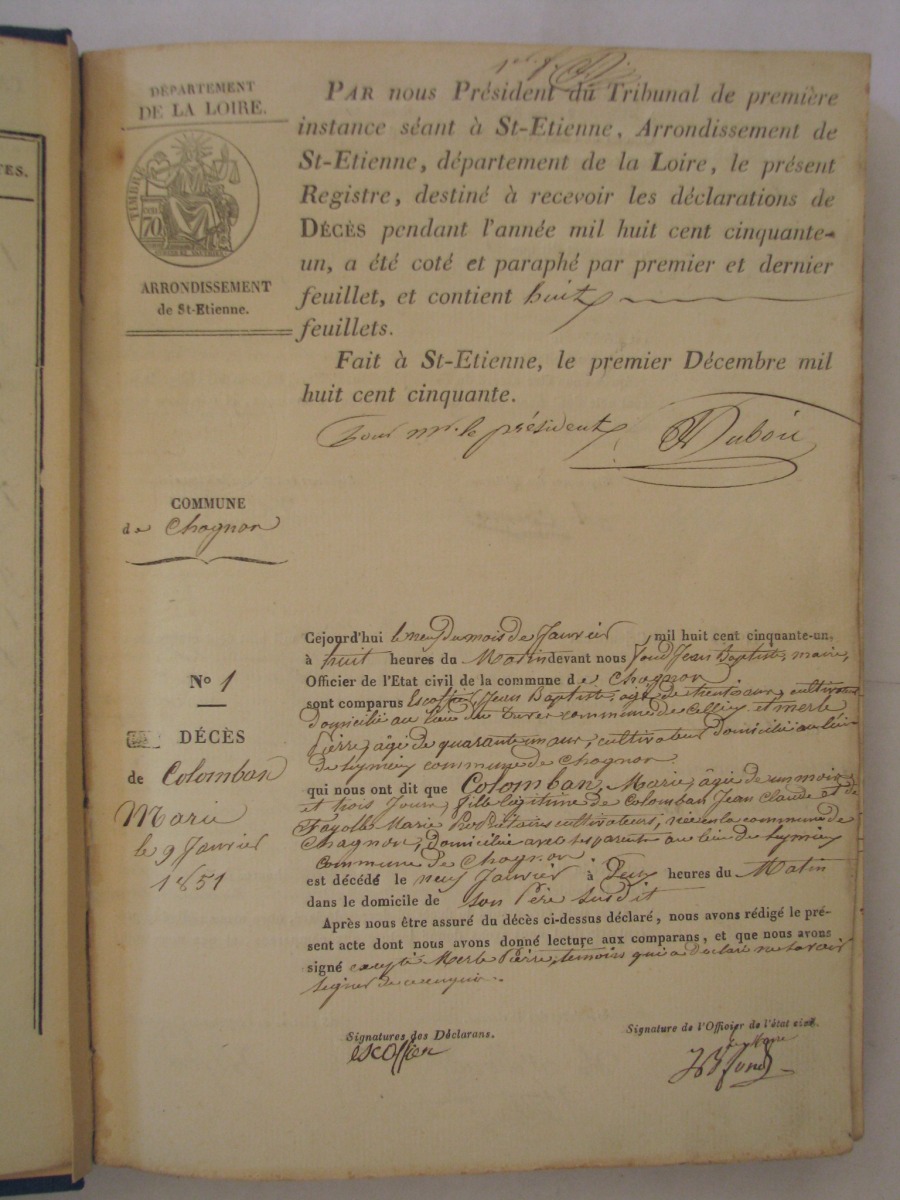 TES.
DÉPARTEMENT
DE LA LOIRE.
TIMBRE
70
ARRONDISSEMENT
de St-Etienne.
PAR nous Président du Tribunal de première
instance séant à St-Etienne, Arrondissement de
St-Etienne, département de la Loire, le présent
Registre, destiné à recevoir les déclarations de
DÉCÈS pendant l'année mil huit cent cinquante-
un, a été coté et paraphé par premier et dernier
feuillet, et contient huit
feuillets.
Fait à St-Etienne, le premier Décembre mil
huit cent cinquante.
Pour mr. le président
Dubois
COMMUNE
de Chagnon
Nº 1
DÉCÈS
de Colomban
Marie
le 9 Janvier
1851
Cejourd'hui le neuf du mois de Janvier mil huit cent cinquante-un,
à huit heures du Matin devant nous fond Jean Baptiste, maire,
Officier de l'Etat civil de la commune de Chagnon
sont comparus Escoffier Jean Baptiste, âgé de trente ans, cultivateur
Domicilié au lieu du commune de Cellieu et merle
Pierre, âgé de quarante un ans, cultivateur Domicilié au lieu
de commune de Chagnon.
qui nous ont dit que Colomban, Marie, âgée de un mois
et trois Jours, fille légitime de Colomban Jean Claude et de
Fayolle Marie Propriétaires cultivateurs, née en la commune de
Chagnon, Domiciliée avec ses parents au lieu de
commune de Chagnon.
est décédé le neuf Janvier à Deux heures du Matin
dans le domicile de son Père susdit
Après nous être assuré du décès ci-dessus déclaré, nous avons rédigé le pré-
sent acte dont nous avons donné lecture aux comparans, et que nous avons
signé excepté Merle Pierre, temoins qui a déclaré ne savoir
signer de ce enquis.
Signatures des Déclarans.
escoffier
Signature de l'Officier de l'état civil.
le Maire
JB fond